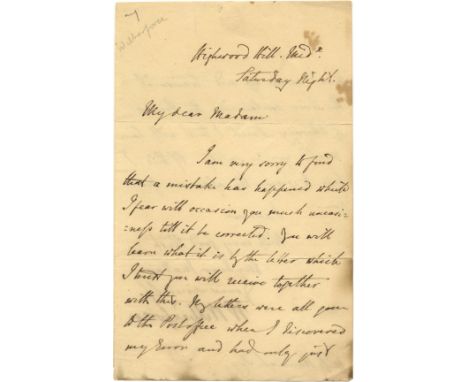 7
Wilberforce
Highwood Hill. Midx.
Saturday Night.
My dear Madam
I am very sorry to find
that a mistake has happened which
I fear will occasion you much uneasi=
=ness till it be corrected. You will
learn what it is by the letter which
I trust you will receive together
with this. My letters were all gone
to the Post office when I discovered
my Error and had only just